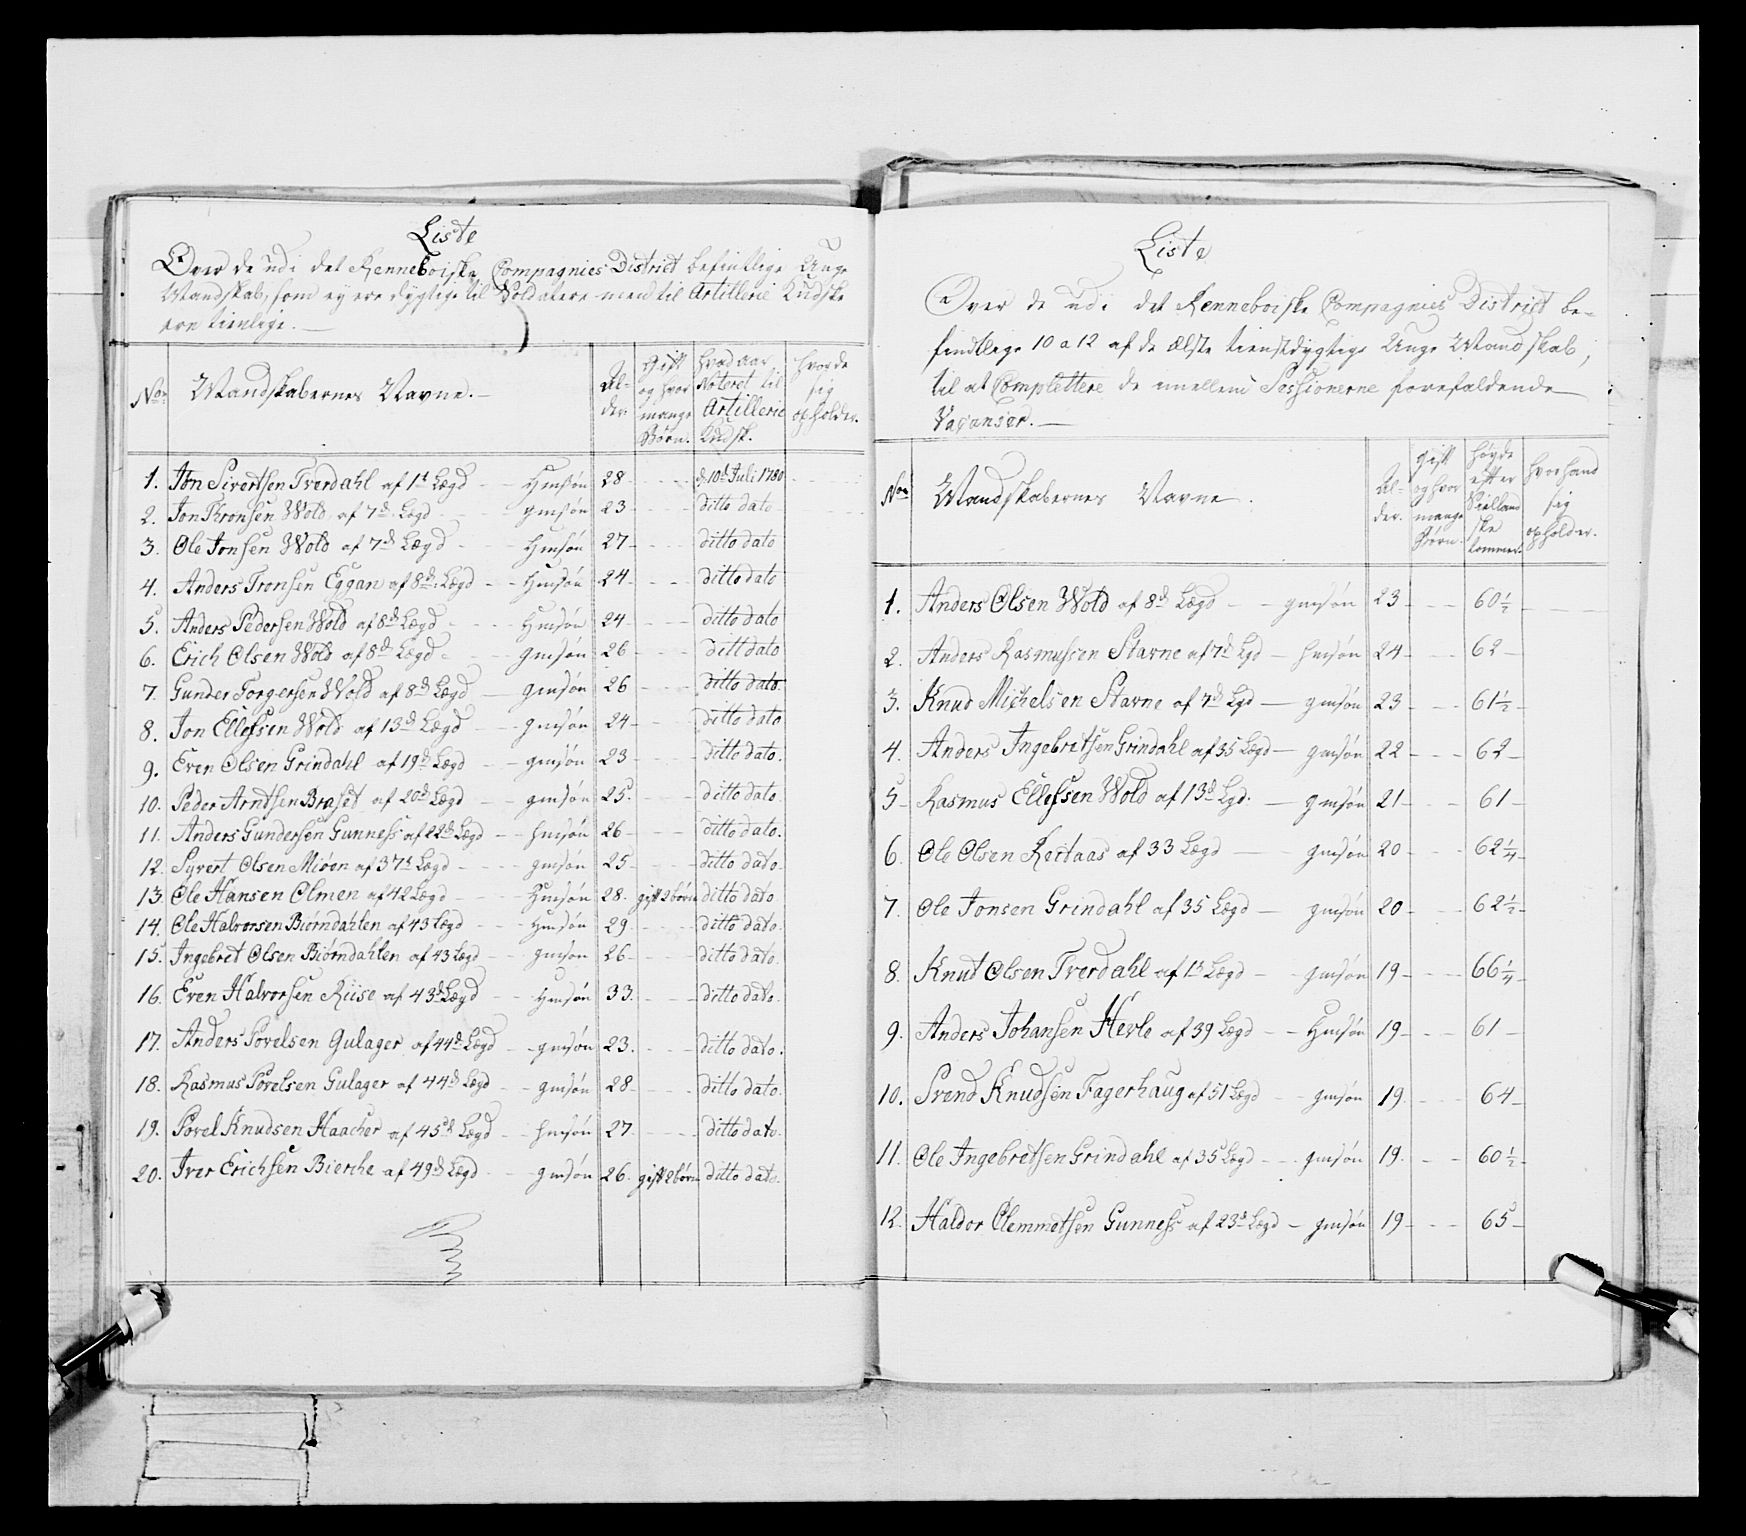 Liste
Over de udi det Renneboiske Compagnies District befintlige Unge
Mandskab, som ey ere dygtige til Soldatere men til Artillerie Kudske
ere tienlige.
No. Mandskabernes Navne. Al- der. Gift og hvor mange Børn. hvad aar Noteret til Artillerie Kudsk. hvor de sig opholder.
1. Jon Sivertsen Tverdahl af 1t Lægd - - Hmsøn 28 - - - d. 10de Juli 1780
2. Jon Tronsen Wold af 7de Lægd - - gmsøn 23 - - - ditto dato
3. Ole Jonsen Wold af 7de Lægd - - Hmsøn 27 - - - ditto dato
4. Anders Tronsen Eggan af 8de Lægd - - Hmsøn 24 - - - ditto dato
5. Anders Pedersen Wold af 8de Lægd - - Hmsøn 24 - - - ditto dato
6. Erich Olsen Wold af 8de Lægd - - gmsøn 26 - - - ditt dato
7. Gunder Torgersen Wold af 8de Lægd - gmsøn 26 - - - ditto dato.
8. Jon Ellefsen Wold af 13de Lægd - - gmsøn 24 - - - ditto dato
9. Even Olsen Grindahl af 19de Lægd - - gmsøn 23 - - - ditto dato.
10. Peder Arntsen Braset af 20de Lægd - - gmsøn 25. - - - ditto dato.
11. Anders Gundersen Gunness af 22de Lægd - - hmsøn 26 - - - ditto dato.
12. Syvert Olsen Miøen af 37te Lægd - - - gmsøn 25 - - - ditto dato.
13. Ole Hansen Olmen af 42 Lægd - - - Hmsøn 28. gift 2 børn ditto dato
14. Ole Halvorsen Biørndahlen af 43 Lægd - - - Hmsøn 29. - - - ditto dato.
15. Ingebret Olsen Biørndahlen af 43 Lægd - - gmsøn 26 - - - ditto dato.
16. Even Halvorsen Riise af 43de Lægd - - Hmsøn 33. - - - ditto dato.
17. Anders Povelsen Gulager af 44de Lægd - - gmsøn 23. - - - ditto dato.
18. Rasmus Povelsen Gulager af 44de Lægd - - gmsøn 28 - - - ditto dato.
19. Povel Knudsen Haacher af 45de Lægd - - hmsøn 27 - - - ditto dato.
20. Iver Erichsen Bierche af 49de Lægd - - gmsøn 26. gift 2 børn ditto dato.
Liste
Over de udi det Renneboiske Compagnies District be-
findtlige 10 a 12 af de Ælste tienstdygtige Unge Mandskab,
til at Complettere de imellem Sessionerne forefaldende
Vacanser.
No. Mandskabernes Navne. Al- der. Gift og hvor mange Børn. høyde efter Siellandske tommer. hvor hand sig opholder.
1. Anders Olsen Wold af 8de Lægd - - gmsøn 23 - - - 60½
2. Anders Rasmussen Stavne af 7de Lgd - hmsøn 24 - - - 62
3. Knud Michelsen Stavne af 7de Lgd - gmsøn 23 - - - 61½
4. Anders Ingebretsen Grindahl af 35 Lægd - gmsøn 22 - - - 62
5 Rasmus Ellefsen Wold af 13de Lgd. - gmsøn 21 - - - 61
6. Ole Olsen Restaas af 33 Lægd - gmsøn 20 - - - 62¼
7. Ole Jonsen Grindahl af 35 Lægd - gmsøn 20 - - - 62½
8. Knut Olsen Tverdahl af 1t Lægd - - gmsøn 19 - - - 66¼
9. Anders Johansen Hevle af 39 Lægd - - Hmsøn 19 - - - 61
10. Svend Knudsen Fagerhaug af 51 Lægd - - gmsøn 19. - - - 64
11. Ole Ingebretsen Grindahl af 35 Lægd - - gmsøn 19. - - - 60½
12. Haldor Clemmetsen Gunness af 23de Lægd - gmsøn 19 - - - 65